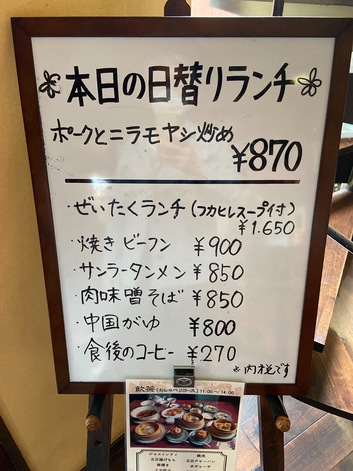 本日の日替りランチ
ポークとニラモヤシ炒め
¥870
・ぜいたくランチ(フカヒレスープ付)
¥1.650
・焼きビーフン ¥900
・サンラータンメン ¥850
・肉味噌そば ¥850
・中国がゆ ¥800
・食後のコーヒー ¥270
※内税です
飲茶(おしゃべりコース) 11:00〜14:00